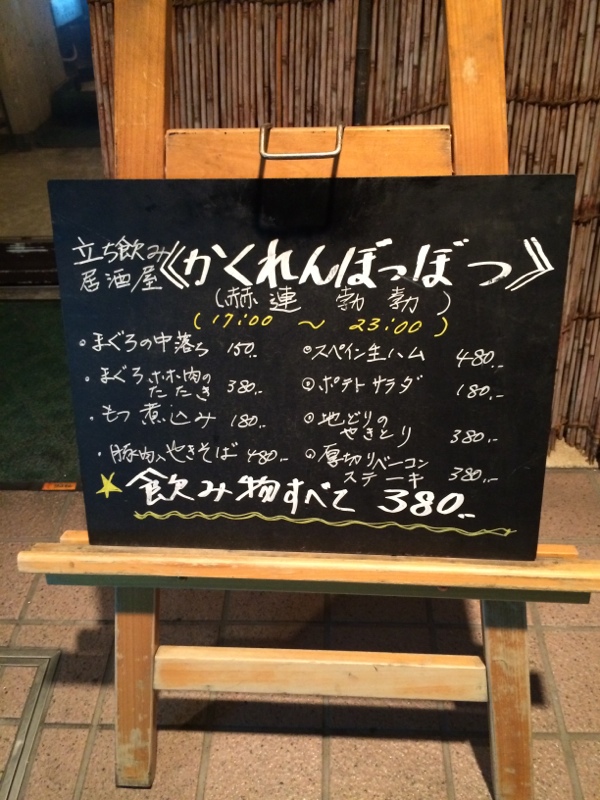 立ち飲み
居酒屋
《かくれんぼっぼつ》
(赫連 勃勃)
(17:00 ～ 23:00)
・まぐろの中落ち 150.-
・まぐろホホ肉の
たたき 380.-
・もつ煮込み 180.-
・豚肉入やきそば 480.-
◎スペイン生ハム 480.-
◎ポテトサラダ 180.-
◎地どりの
やきとり 380.-
◎厚切りベーコン
ステーキ 380.-
★飲み物すべて 380.-